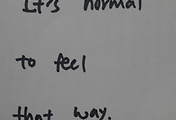 It's normal
to feel
that way.